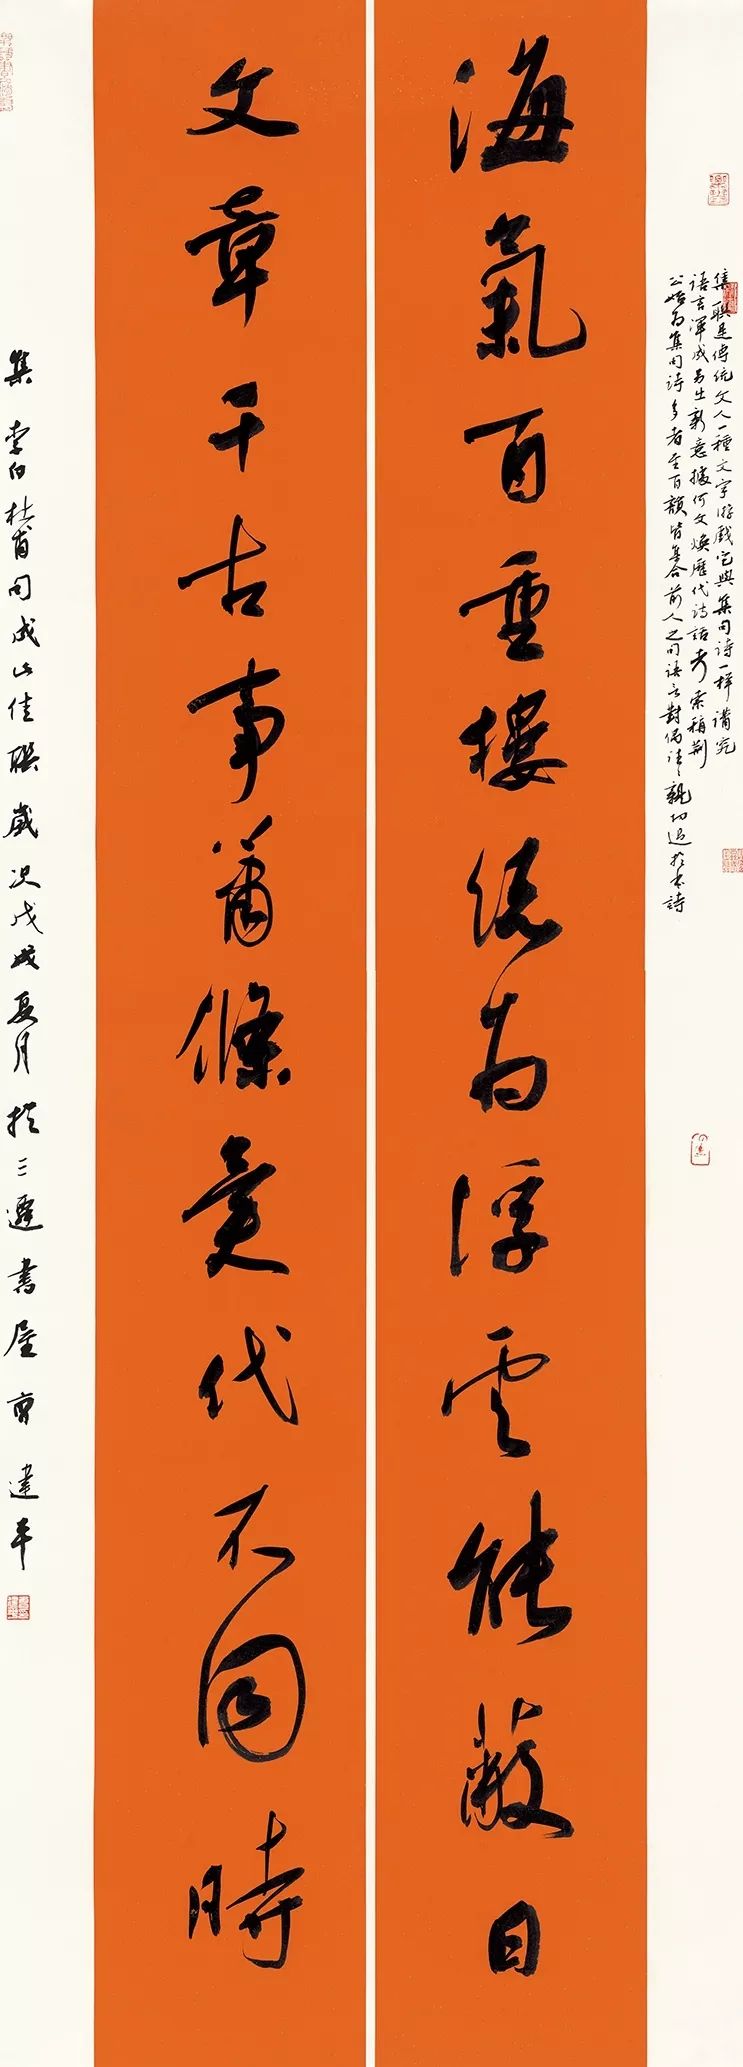 集聯是傳統文人一種文字游戲它與集句詩一樣講究
語言渾成另出新意據何文煥歷代詩話考索稱荆
公始為集句詩多者至百韻皆集合前人之句語意對偶往往親切過於本詩
海氣百重樓總為浮雲能蔽日
文章千古事蕭條異代不同時
集李白杜甫句成此佳聯歲次戊戌夏月於三遷書屋建平